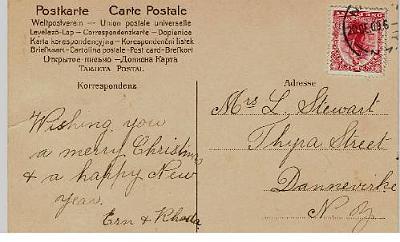 Postkarte Carte Postale
Weltpostverein — Union postale universelle
Levelező-Lap — Correspondenzkarte — Dopisnice
Karta korespondencyjna — Korespondenční listek
Brefkort — Cartolina postale - Post card - Brefkort
Открытое письмо
TARJETA POSTAL
Korrespondenz
Adresse
Wishing you
a merry Christmas
& a happy New
year.
Ern & Rhoda
Mrs L Stewart
Thyra Street
Dannevirke
N. Z.